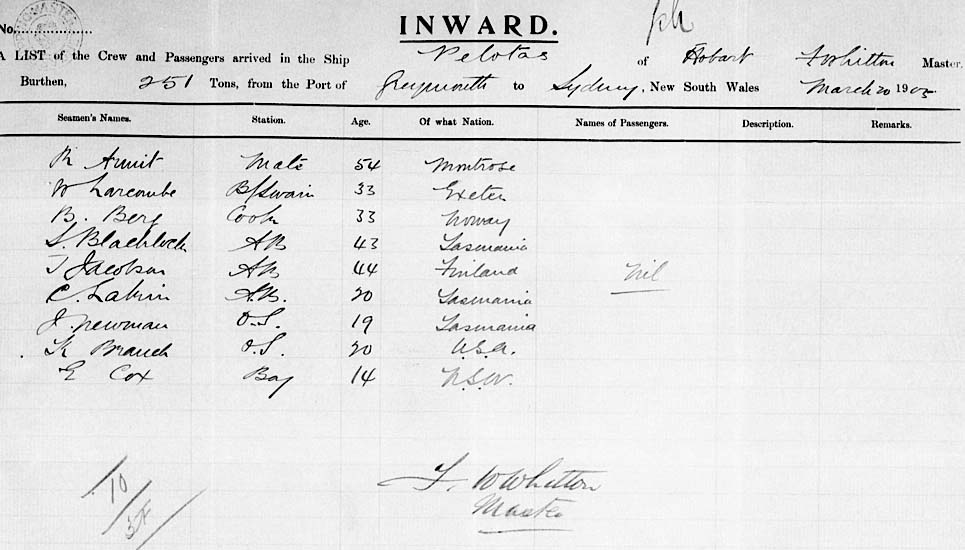 INWARD.
No.
A LIST of the Crew and Passengers arrived in the Ship Pelotas of Hobart F W Whitton Master,
Burthen, 251 Tons, from the Port of Greymouth to Sydney, New South Wales March 20 1905
Seamen's Names. Station. Age. Of what Nation. Names of Passengers. Description. Remarks.
R Armit Mate 54 Montrose
W Larcombe B/Swain 33 Exeter
B. Berg Cook 33 Norway
S. Blacklock AB 43 Tasmania
J Jacobson AB 44 Finland Nil
C. Lakin A.B. 20 Tasmania
J. Newman O.S. 19 Tasmania
K Branch O.S. 20 U.S.A.
E Cox Boy 14 N.S.W.
10
F. W Whitton
Master